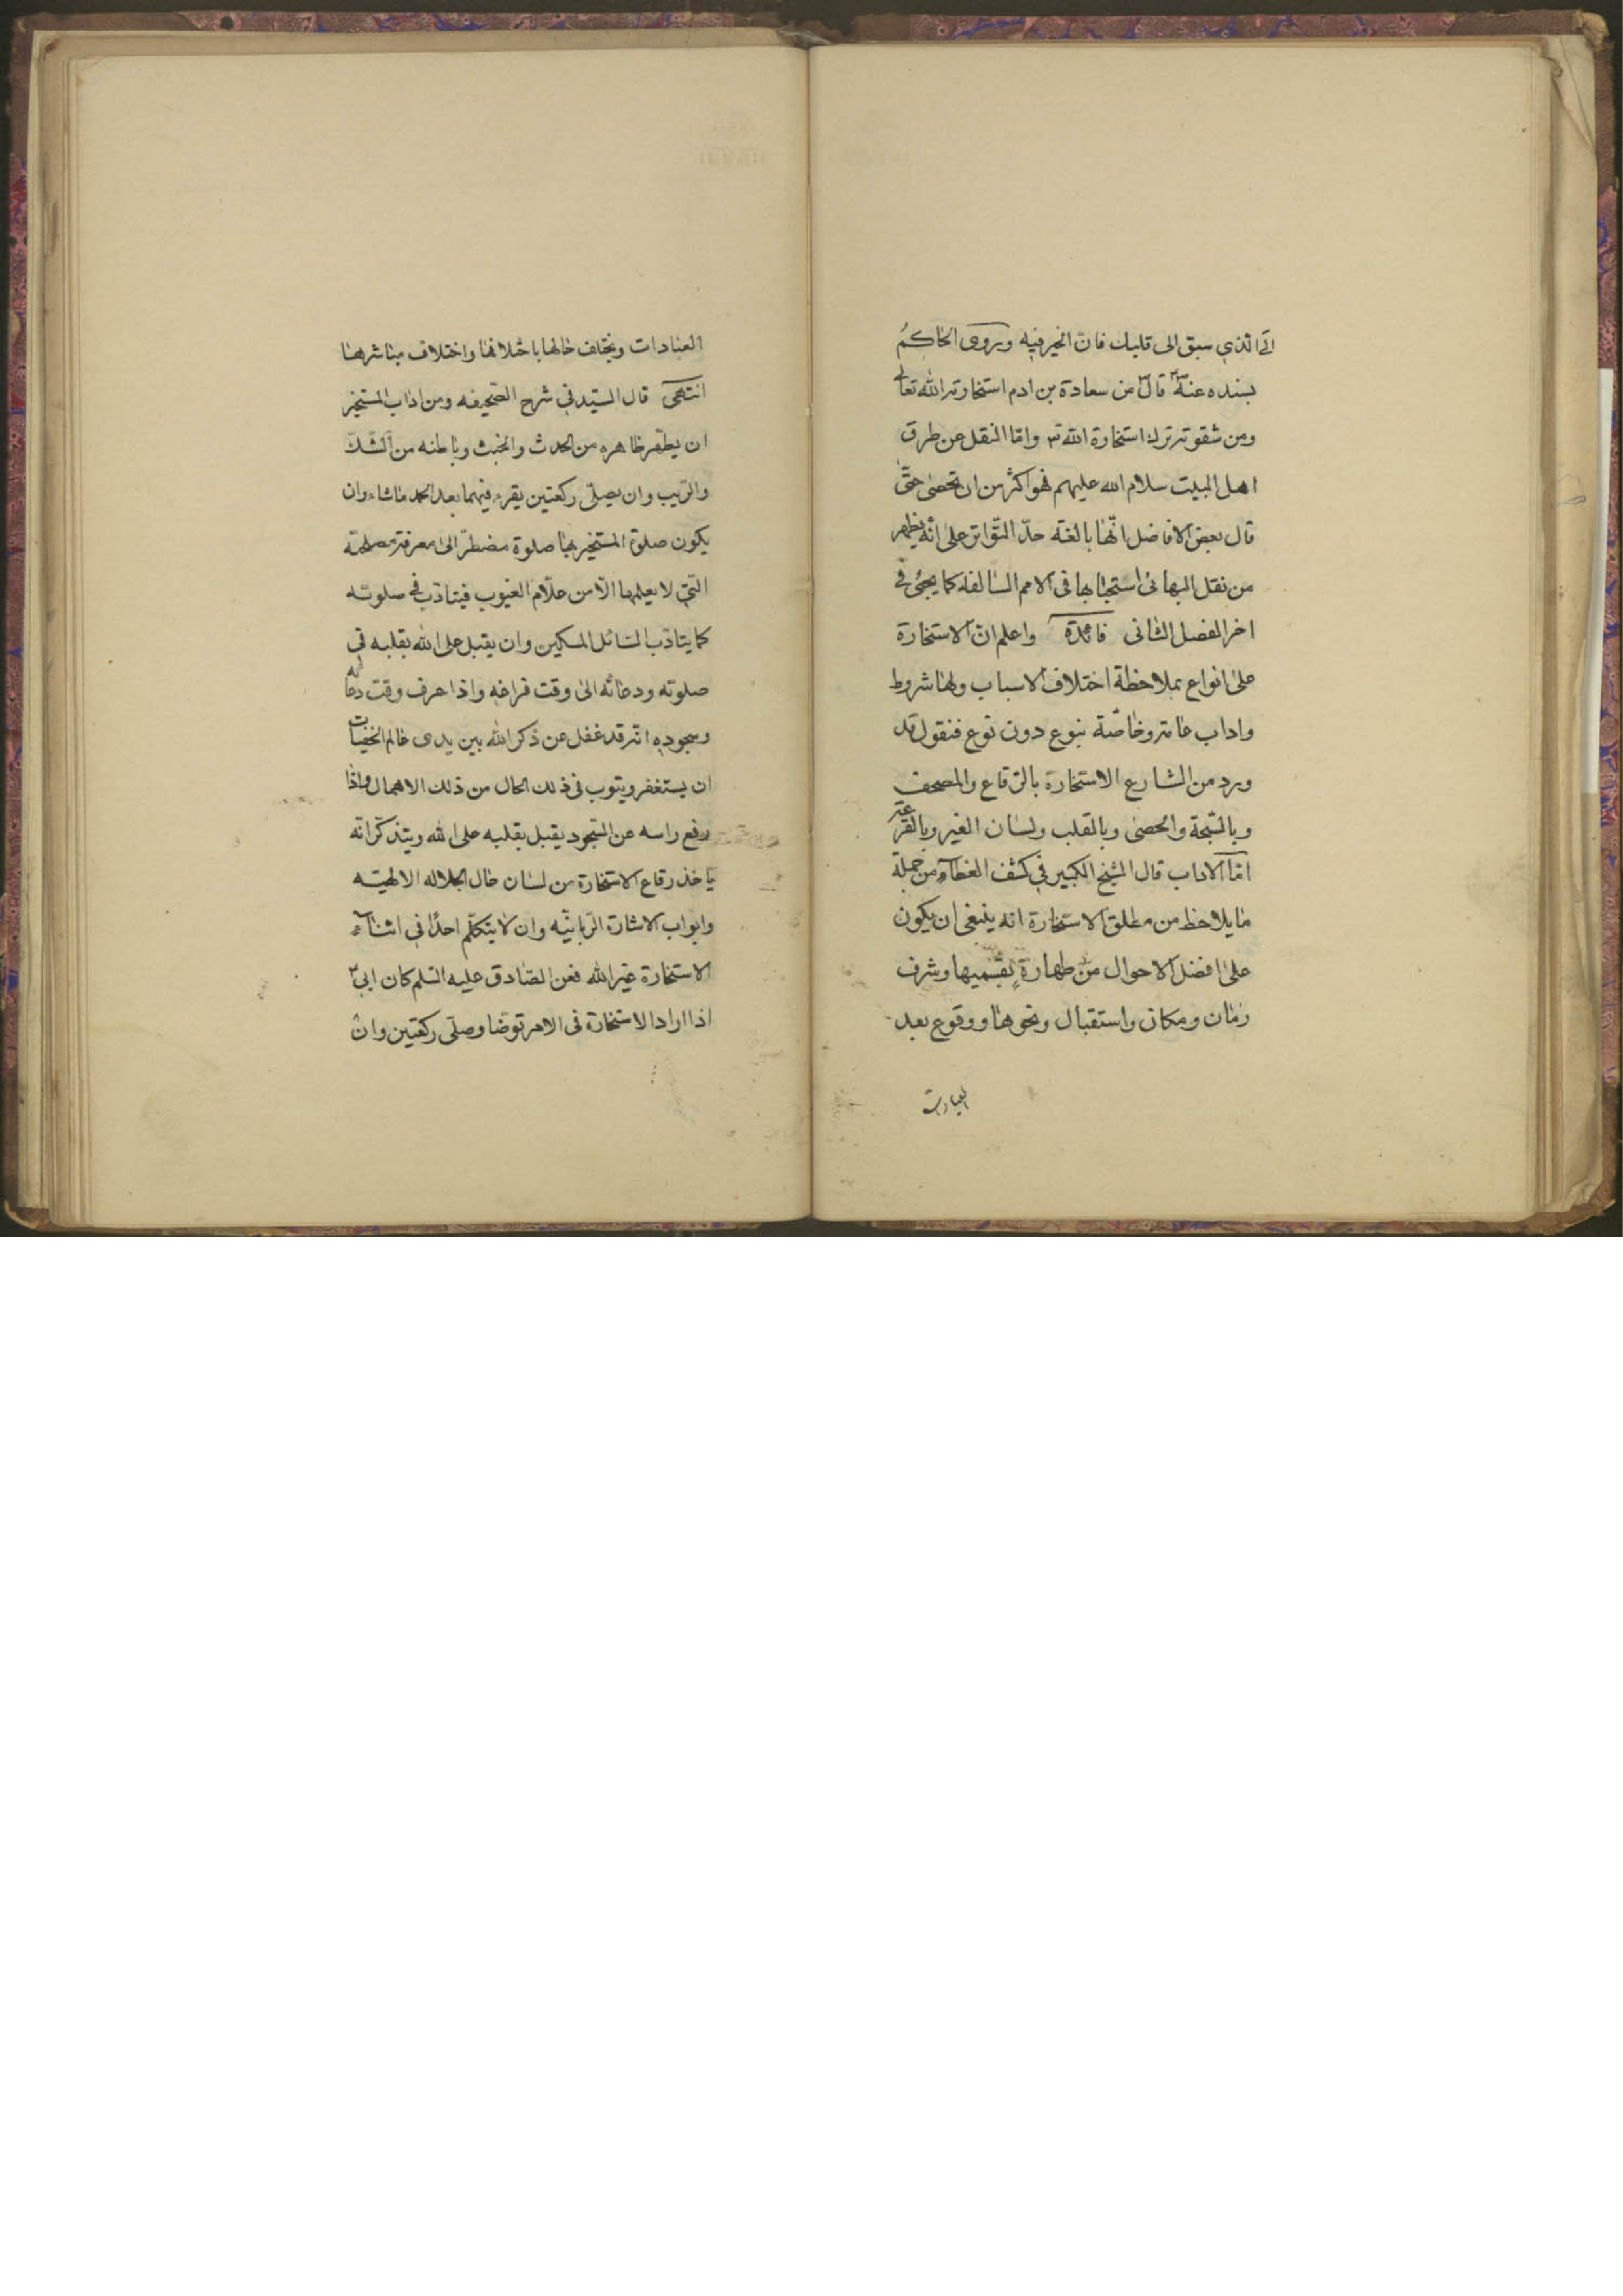 الى الذي سبق الى قلبك فان الخير فيه وروى الحاكم
بسنده عنه ص قال من سعادة بن ادم استخارته الله تعالى
ومن شقوته ترك استخارة الله تع واما النقل عن طرق
اهل البيت سلام الله عليهم فهو اكثر من ان تحصى حتى
قال بعض الافاضل انها بالغة حد التواتر على انه يظهر
من نقل البهائى استحبابها فى الامم السالفة كما يجئ في
اخر الفصل الثانى فائدة واعلم ان الاستخارة
على انواع بملاحظة اختلاف الاسباب ولها شروط
واداب عامة وخاصة بنوع دون نوع فنقول قد
ورد من الشارع الاستخارة بالرقاع والمصحف
وبالسبحة والحصى وبالقلب ولسان الغير وبالقرعة
اما الاداب قال الشيخ الكبير في كشف الغطاء من جملة
ما يلاحظ من مطلق الاستخارة انه ينبغى ان يكون
على افضل الاحوال من طهارة بقسميها وشرف
زمان ومكان واستقبال ونحوها ووقوع بعد
العبادات
العبادات ويختلف حالها باختلافها واختلاف مباشرها
انتهى قال السيد في شرح الصحيفه ومن اداب المستخير
ان يطهر ظاهره من الحدث والخبث وباطنه من الشك
والريب وان يصلى ركعتين يقرء فيهما بعد الحمد ماشاء وان
يكون صلوة المستخير بها صلوة مضطر الى معرفة مصلحته
التي لا يعلمها الا من علام الغيوب فيتادب في صلوته
كما يتادب السائل المسكين وان يقبل على الله بقلبه في
صلوته ودعائه الى وقت فراغه واذا عرف وقت دعائه
وسجوده انه قد غفل عن ذكر الله بين يدى عالم الخفيات
ان يستغفر ويتوب فى ذلك الحال من ذلك الاهمال واذا
رفع راسه عن السجود يقبل بقلبه على الله ويتذكر انه
ياخذ رقاع الاستخارة من لسان حال الجلاله الالهيه
وابواب الاشارة الربانيه وان لا يتكلم احدا في اثناء
الاستخارة غير الله فعن الصادق عليه السلم كان ابي ع
اذا اراد الاستخارة فى الامر توضا وصلى ركعتين وان